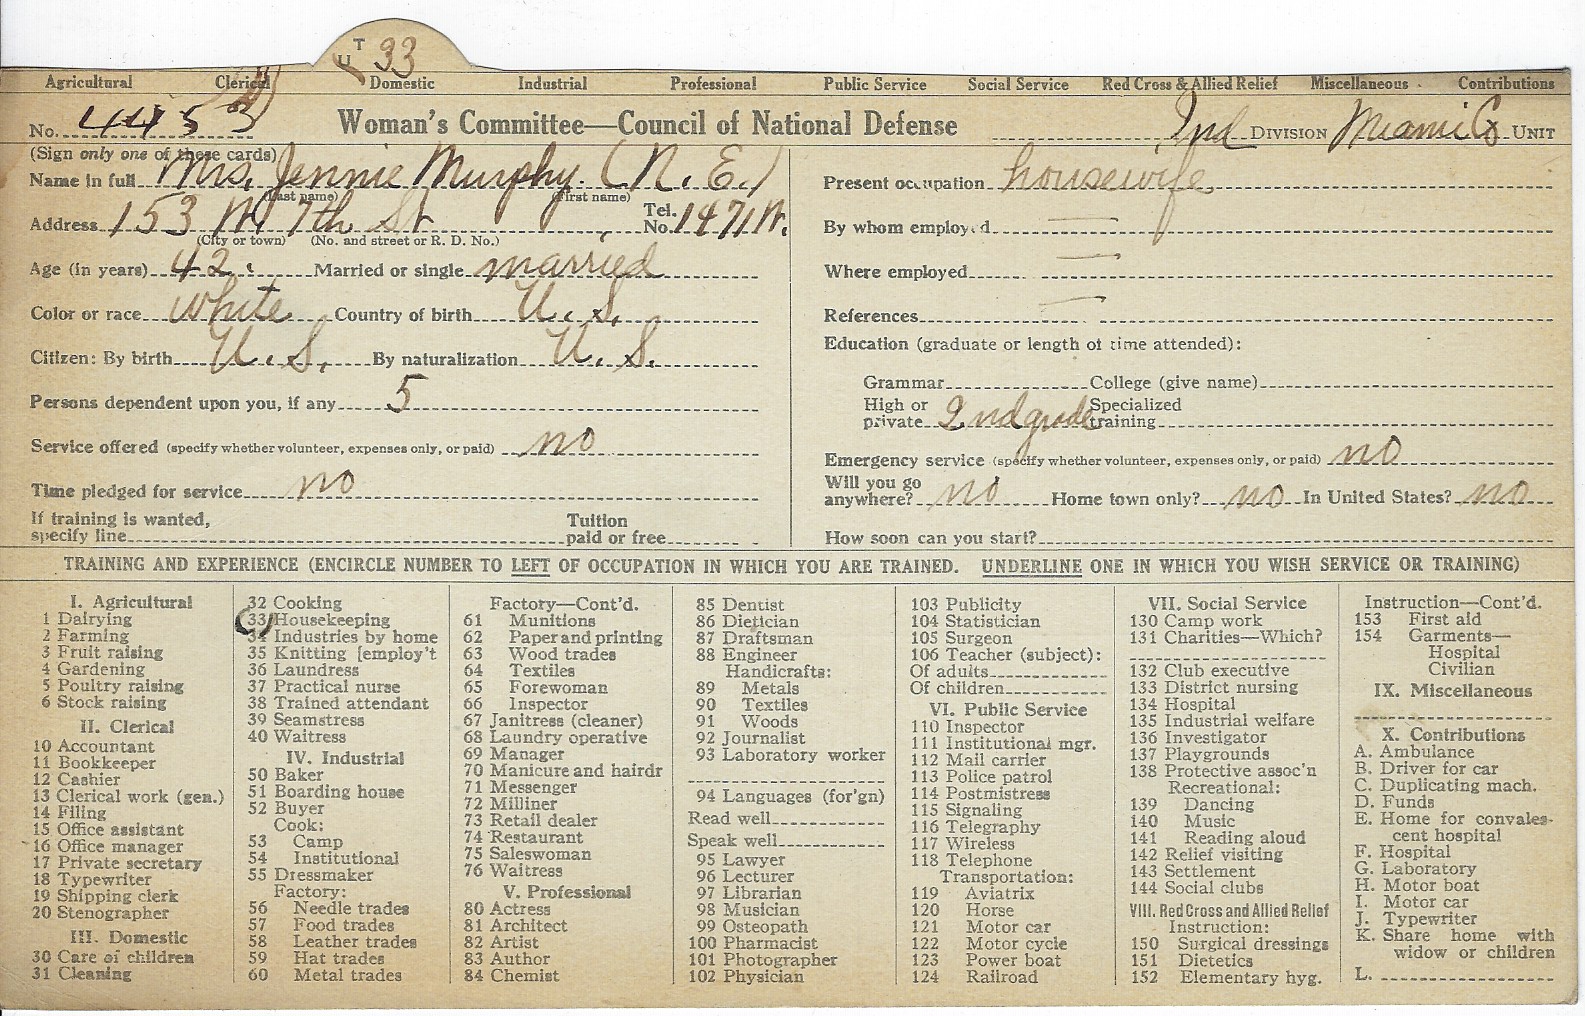 U T 33
Agricultural Clerical Domestic Industrial Professional Public Service Social Service Red Cross & Allied Relief Miscellaneous Contributions
No. 4453 Woman's Committee—Council of National Defense Ind DIVISION Miami Co UNIT
(Sign only one of these cards)
Name in full Mrs. Jennie Murphy. (N. E.)
(Last name) (First name)
Address 153 W. 7th St Tel. No. 1471 W.
(City or town) (No. and street or R. D. No.)
Age (in years) 42. Married or single married
Color or race white Country of birth U. S.
Citizen: By birth U. S. By naturalization U. S.
Persons dependent upon you, if any 5
Service offered (specify whether volunteer, expenses only, or paid) no
Time pledged for service no
If training is wanted, specify line Tuition paid or free
Present occupation housewife
By whom employed —
Where employed —
References —
Education (graduate or length of time attended):
Grammar College (give name)
High or private 2nd grade Specialized training
Emergency service (specify whether volunteer, expenses only, or paid) no
Will you go anywhere? no Home town only? no In United States? no
How soon can you start?
TRAINING AND EXPERIENCE (ENCIRCLE NUMBER TO LEFT OF OCCUPATION IN WHICH YOU ARE TRAINED. UNDERLINE ONE IN WHICH YOU WISH SERVICE OR TRAINING)
I. Agricultural
1 Dairying
2 Farming
3 Fruit raising
4 Gardening
5 Poultry raising
6 Stock raising
II. Clerical
10 Accountant
11 Bookkeeper
12 Cashier
13 Clerical work (gen.)
14 Filing
15 Office assistant
16 Office manager
17 Private secretary
18 Typewriter
19 Shipping clerk
20 Stenographer
III. Domestic
30 Care of children
31 Cleaning
32 Cooking
33 Housekeeping
34 Industries by home
35 Knitting [employ't
36 Laundress
37 Practical nurse
38 Trained attendant
39 Seamstress
40 Waitress
IV. Industrial
50 Baker
51 Boarding house
52 Buyer
Cook:
53 Camp
54 Institutional
55 Dressmaker
Factory:
56 Needle trades
57 Food trades
58 Leather trades
59 Hat trades
60 Metal trades
Factory—Cont'd.
61 Munitions
62 Paper and printing
63 Wood trades
64 Textiles
65 Forewoman
66 Inspector
67 Janitress (cleaner)
68 Laundry operative
69 Manager
70 Manicure and hairdr
71 Messenger
72 Milliner
73 Retail dealer
74 Restaurant
75 Saleswoman
76 Waitress
V. Professional
80 Actress
81 Architect
82 Artist
83 Author
84 Chemist
85 Dentist
86 Dietician
87 Draftsman
88 Engineer
Handicrafts:
89 Metals
90 Textiles
91 Woods
92 Journalist
93 Laboratory worker
94 Languages (for'gn)
Read well
Speak well
95 Lawyer
96 Lecturer
97 Librarian
98 Musician
99 Osteopath
100 Pharmacist
101 Photographer
102 Physician
103 Publicity
104 Statistician
105 Surgeon
106 Teacher (subject):
Of adults
Of children
VI. Public Service
110 Inspector
111 Institutional mgr.
112 Mail carrier
113 Police patrol
114 Postmistress
115 Signaling
116 Telegraphy
117 Wireless
118 Telephone
Transportation:
119 Aviatrix
120 Horse
121 Motor car
122 Motor cycle
123 Power boat
124 Railroad
VII. Social Service
130 Camp work
131 Charities—Which?
132 Club executive
133 District nursing
134 Hospital
135 Industrial welfare
136 Investigator
137 Playgrounds
138 Protective assoc'n
Recreational:
139 Dancing
140 Music
141 Reading aloud
142 Relief visiting
143 Settlement
144 Social clubs
VIII. Red Cross and Allied Relief
Instruction:
150 Surgical dressings
151 Dietetics
152 Elementary hyg.
Instruction—Cont'd.
153 First aid
154 Garments—
Hospital
Civilian
IX. Miscellaneous
X. Contributions
A. Ambulance
B. Driver for car
C. Duplicating mach.
D. Funds
E. Home for convales-
cent hospital
F. Hospital
G. Laboratory
H. Motor boat
I. Motor car
J. Typewriter
K. Share home with
widow or children
L.